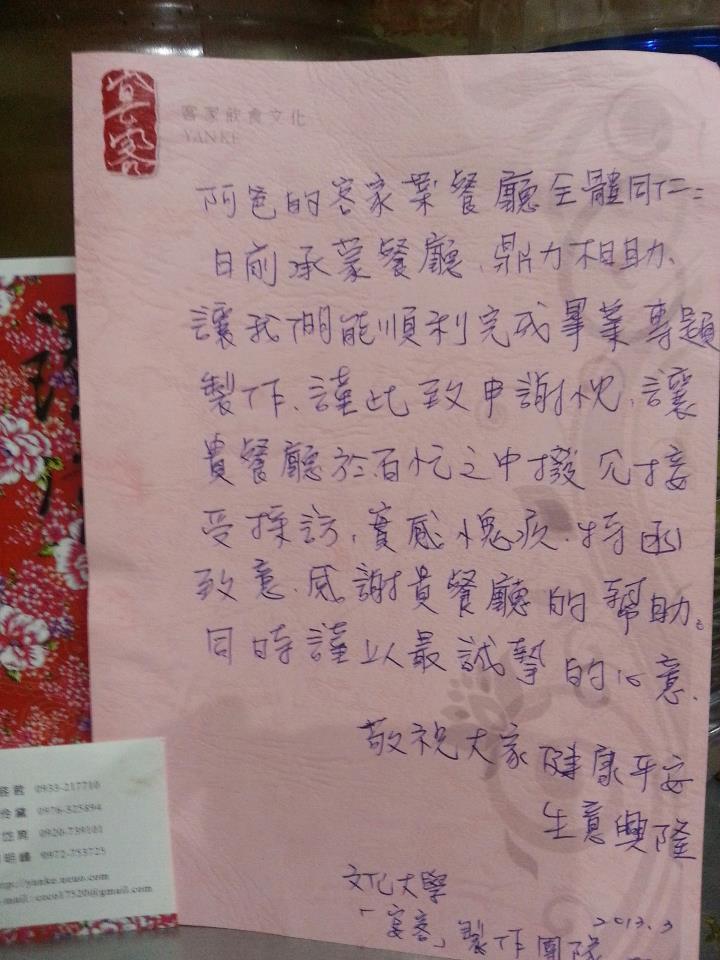 宴客
客家飲食文化
YANKE
阿爸的客家菜餐廳全體同仁:
日前承蒙餐廳、鼎力相助、
讓我們能順利完成畢業專題
製作、謹此致申謝忱、讓
貴餐廳於百忙之中撥冗接
受採訪、實感愧疚、特函
致意、感謝貴餐廳的幫助。
同時謹以最誠摯的心意、
敬祝大家健康平安
生意興隆
文化大學
「宴客」製作團隊
2013.3
0933-217710
0976-325894
0920-739101
明峰 0972-753725
http://yanke.ucuo.com
e-mail:coco17520@gmail.com